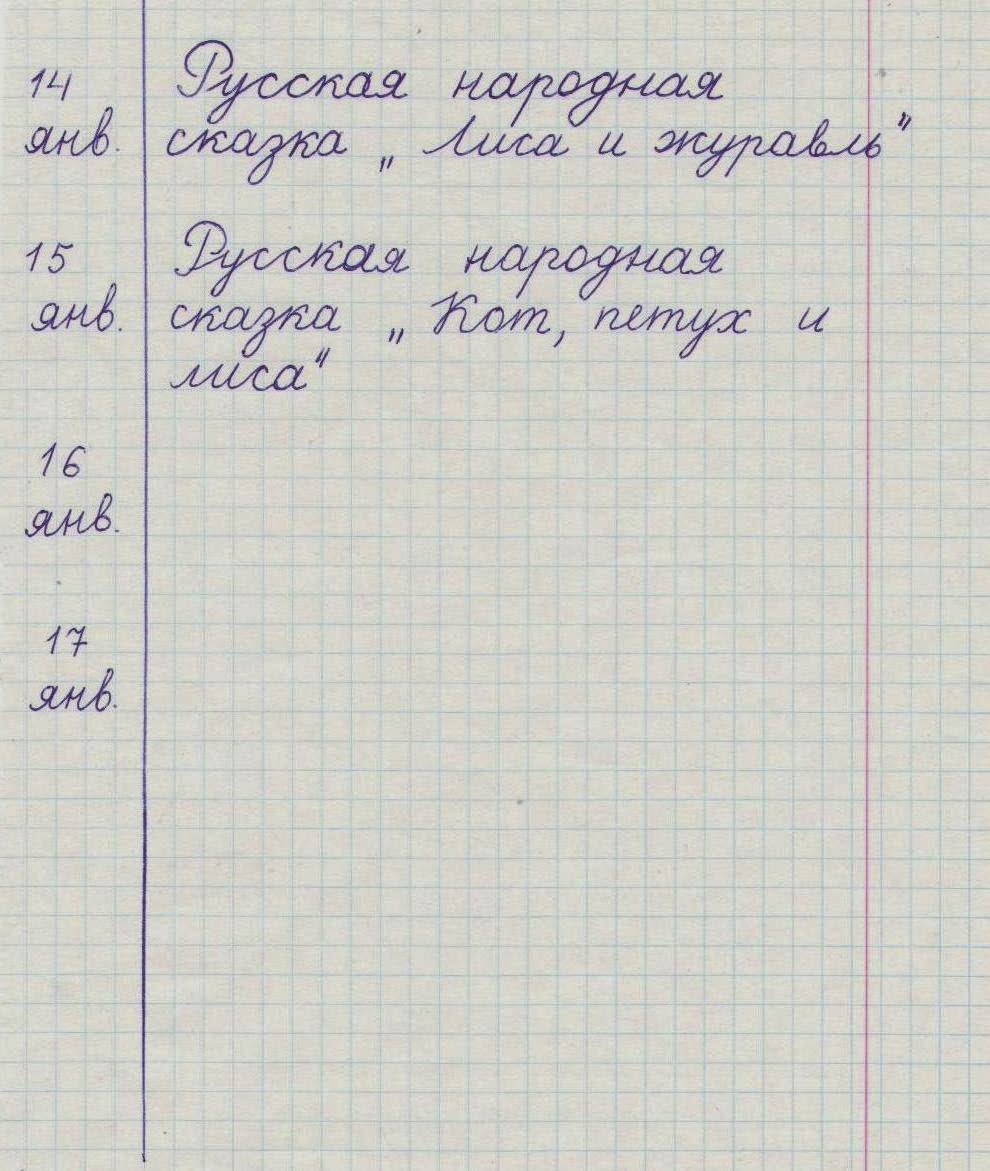 14 Русская народная
янв. сказка „ Лиса и журавль"
15 Русская народная
янв. сказка „ Кот, петух и
лиса"
16
янв.
17
янв.